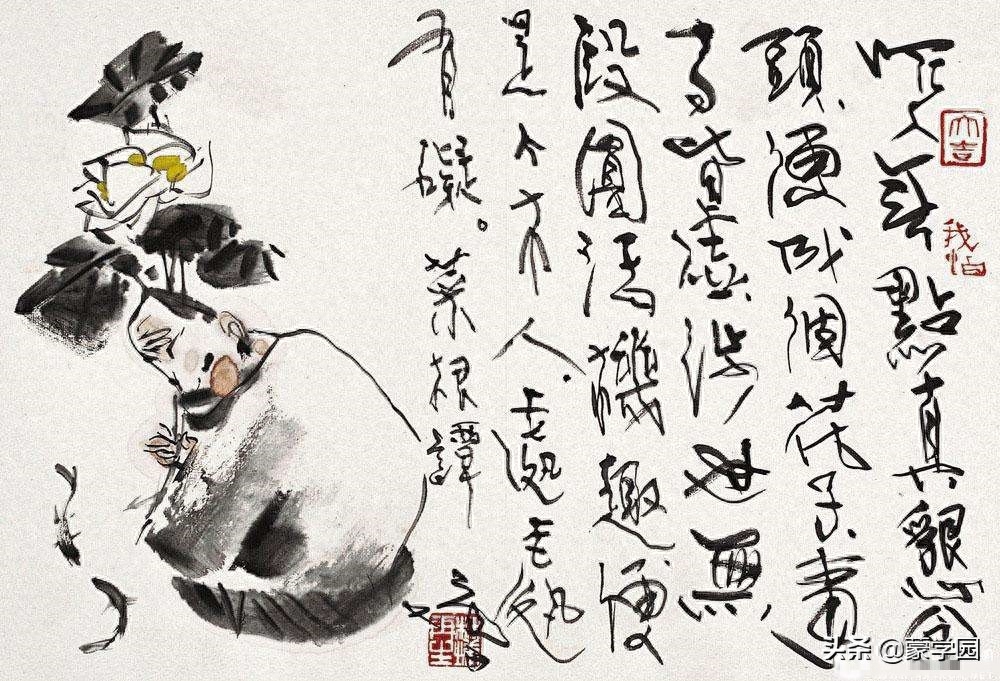 作人無點真懇念
大吉
我怕
頭、便成個花子、事
事皆虛、涉世無
段圓活機趣便
是个木人、處處
有礙。菜根譚
头条 @蒙学园